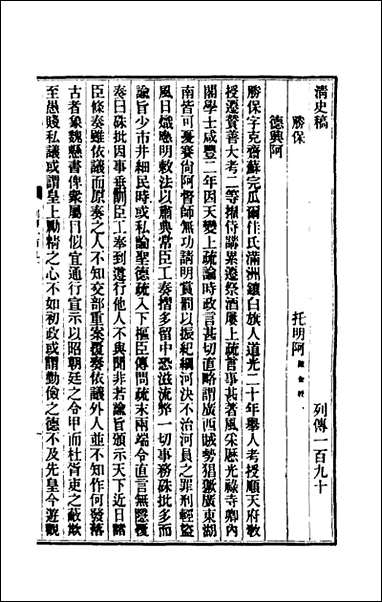 清史稿
列傳一百九十
勝保
托明阿 陳金綬
德興阿
勝保字克齋蘇完瓜爾佳氏滿洲鑲白旗人道光二十年舉人考授順天府教
授遷贊善大考二等擢侍講累遷祭酒屢上疏言事甚著風采歷光祿寺卿內
閣學士咸豐二年因天變上疏論時政言甚切直略謂廣西賊勢猖獗廣東湖
南皆可憂賽尙阿督師無功請明賞罰以振紀綱河決不治河員之罪刑輕盜
風日熾應明敕法以肅典常臣工奏摺多留中恐滋流弊一切事務硃批多而
諭旨少市井細民時或私論聖德疏入下樞臣傳問疏末兩端令直言無隱覆
奏曰硃批因事垂訓臣工奉到遵行他人不與聞非若諭旨頒示天下近日諸
臣條奏雖依議而原奏之人不知交部重案覆奏依議外人並不知作何發落
古者象魏懸書俾衆屬目似宜通行宣示以昭朝廷之令甲而杜胥吏之蔽欺
至愚賤私議或謂皇上勵精之心不如初政或謂勤儉之德不及先皇今遊觀